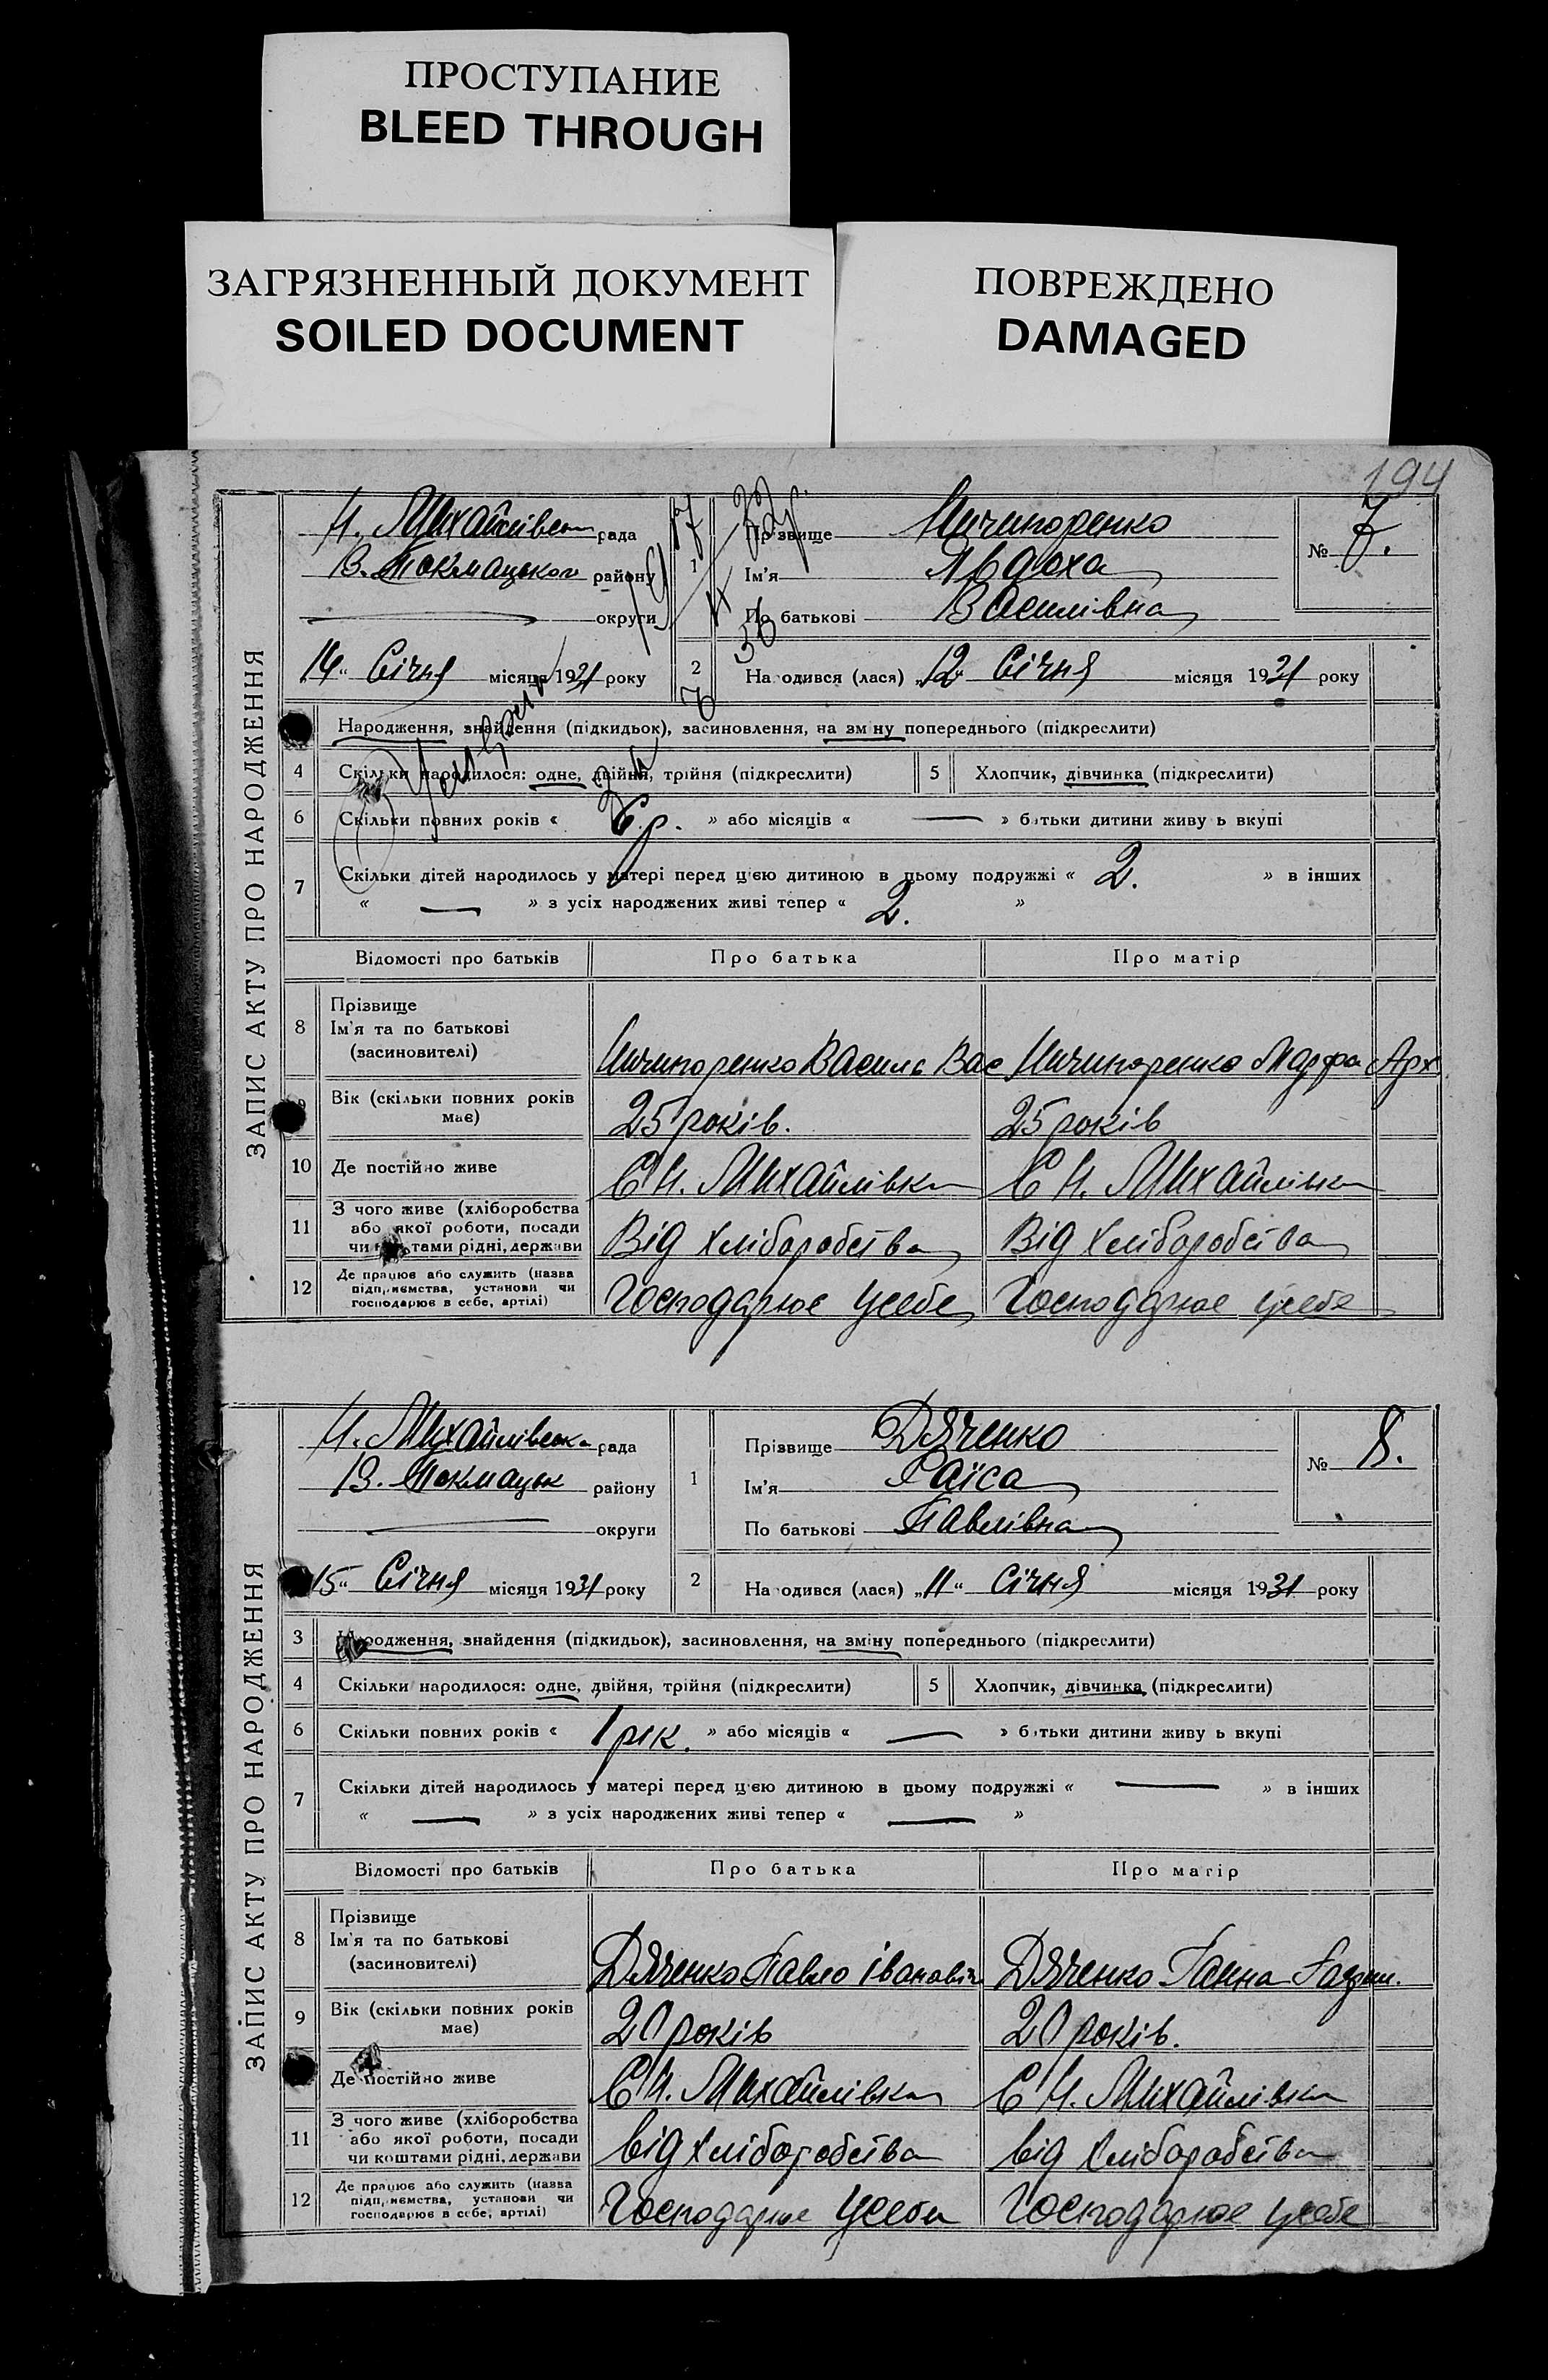 ПРОСТУПАНИЕ
BLEED THROUGH
ЗАГРЯЗНЕННЫЙ ДОКУМЕНТ
SOILED DOCUMENT
ПОВРЕЖДЕНО
DAMAGED
194
ЗАПИС АКТУ ПРО НАРОДЖЕННЯ
Н. Михайлівськ рада
В. Токмацького району
округи
1 Прізвище Ничипоренко
Ім'я Явдоха
По батькові Василівна
№ 7.
14" Січня місяця 1931 року
2 Народився (лася) „12" Січня місяця 1931 року
Народження, знайдення (підкидьок), засиновлення, на зміну попереднього (підкреслити)
4 Скільки народилося: одне, двійня, трійня (підкреслити) 5 Хлопчик, дівчинка (підкреслити)
6 Скільки повних років « 6 р. » або місяців « — » батьки дитини живуть вкупі
7 Скільки дітей народилось у матері перед цією дитиною в цьому подружжі « 2. » в інших
« — » з усіх народжених живі тепер « 2. »
Відомості про батьків Про батька Про матір
8 Прізвище
Ім'я та по батькові
(засиновителі)
Ничипоренко Василь Вас Ничипоренко Марфа Арх
9 Вік (скільки повних років має) 25 років. 25 років
10 Де постійно живе С Н. Михайлівка С Н. Михайлівка
11 З чого живе (хліборобства
або якої роботи, посади
чи коштами рідні, держави
Від хліборобства Від хліборобства
12 Де працює або служить (назва
підприємства, установи чи
господарює в себе, артілі)
Господарює усебе Господарює усебе
ЗАПИС АКТУ ПРО НАРОДЖЕННЯ
Н. Михайлівська рада
В. Токмацьк району
округи
1 Прізвище Дяченко
Ім'я Раїса
По батькові Павлівна
№ 8.
15" Січня місяця 1931 року
2 Народився (лася) „11" Січня місяця 1931 року
3 Народження, знайдення (підкидьок), засиновлення, на зміну попереднього (підкреслити)
4 Скільки народилося: одне, двійня, трійня (підкреслити) 5 Хлопчик, дівчинка (підкреслити)
6 Скільки повних років « 1 рік. » або місяців « — » батьки дитини живуть вкупі
7 Скільки дітей народилось у матері перед цією дитиною в цьому подружжі « — » в інших
« — » з усіх народжених живі тепер « — »
Відомості про батьків Про батька Про матір
8 Прізвище
Ім'я та по батькові
(засиновителі)
Дяченко Павло Іванович Дяченко Ганна
9 Вік (скільки повних років має) 20 років 20 років.
Де постійно живе С Н. Михайлівка С Н. Михайлівка
11 З чого живе (хліборобства
або якої роботи, посади
чи коштами рідні, держави
від хліборобства від хліборобства
12 Де працює або служить (назва
підприємства, установи чи
господарює в себе, артілі)
Господарює усебе Господарює усебе